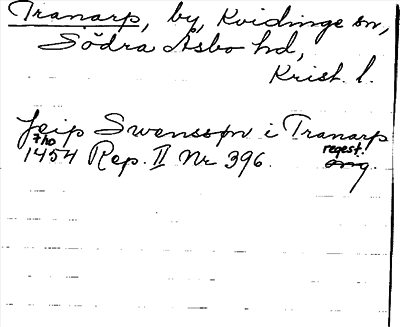 Tranarp, by, Kvidinge sn,
Södra Åsbo hd,
Krist. l.
Jeip Swensson i Tranarp
7/10
1454 Rep. II Nr 396. regest.